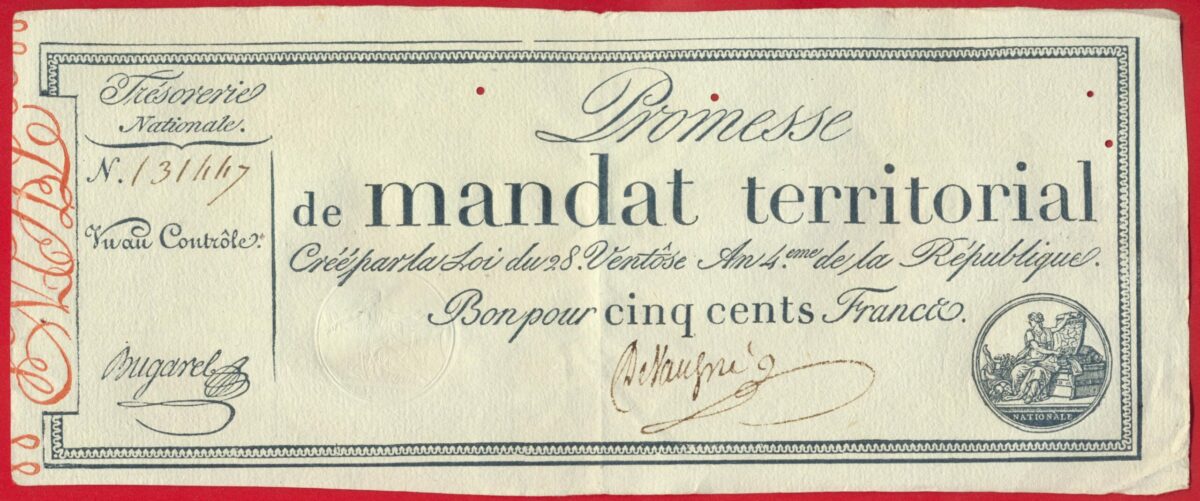 Trésorerie
Nationale.
N. 131447
Vu au Contrôle.
Bugarel
Promesse
de mandat territorial
Créé par la Loi du 28. Ventôse An 4.eme de la République.
Bon pour cinq cents Francs.
NATIONALE